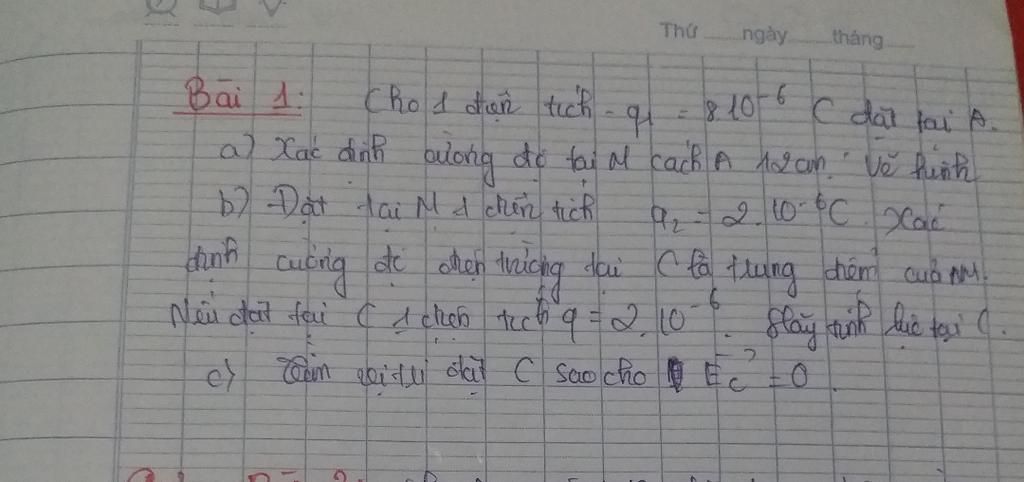 Thứ ngày tháng
Bài 1: Cho 1 điện tích q1 = 8.10^-6 C đặt tại A.
a) Xác định cường độ tại M cách A 12cm. Vẽ hình
b) Đặt tại M 1 điện tích q2 = 2.10^-6C. Xác
định cường độ điện trường tại C là trung điểm của AM.
Nếu đặt tại C 1 điện tích q = 2.10^-6. Hãy tính lực tại C.
c) Tìm vị trí đặt C sao cho E⃗c = 0.